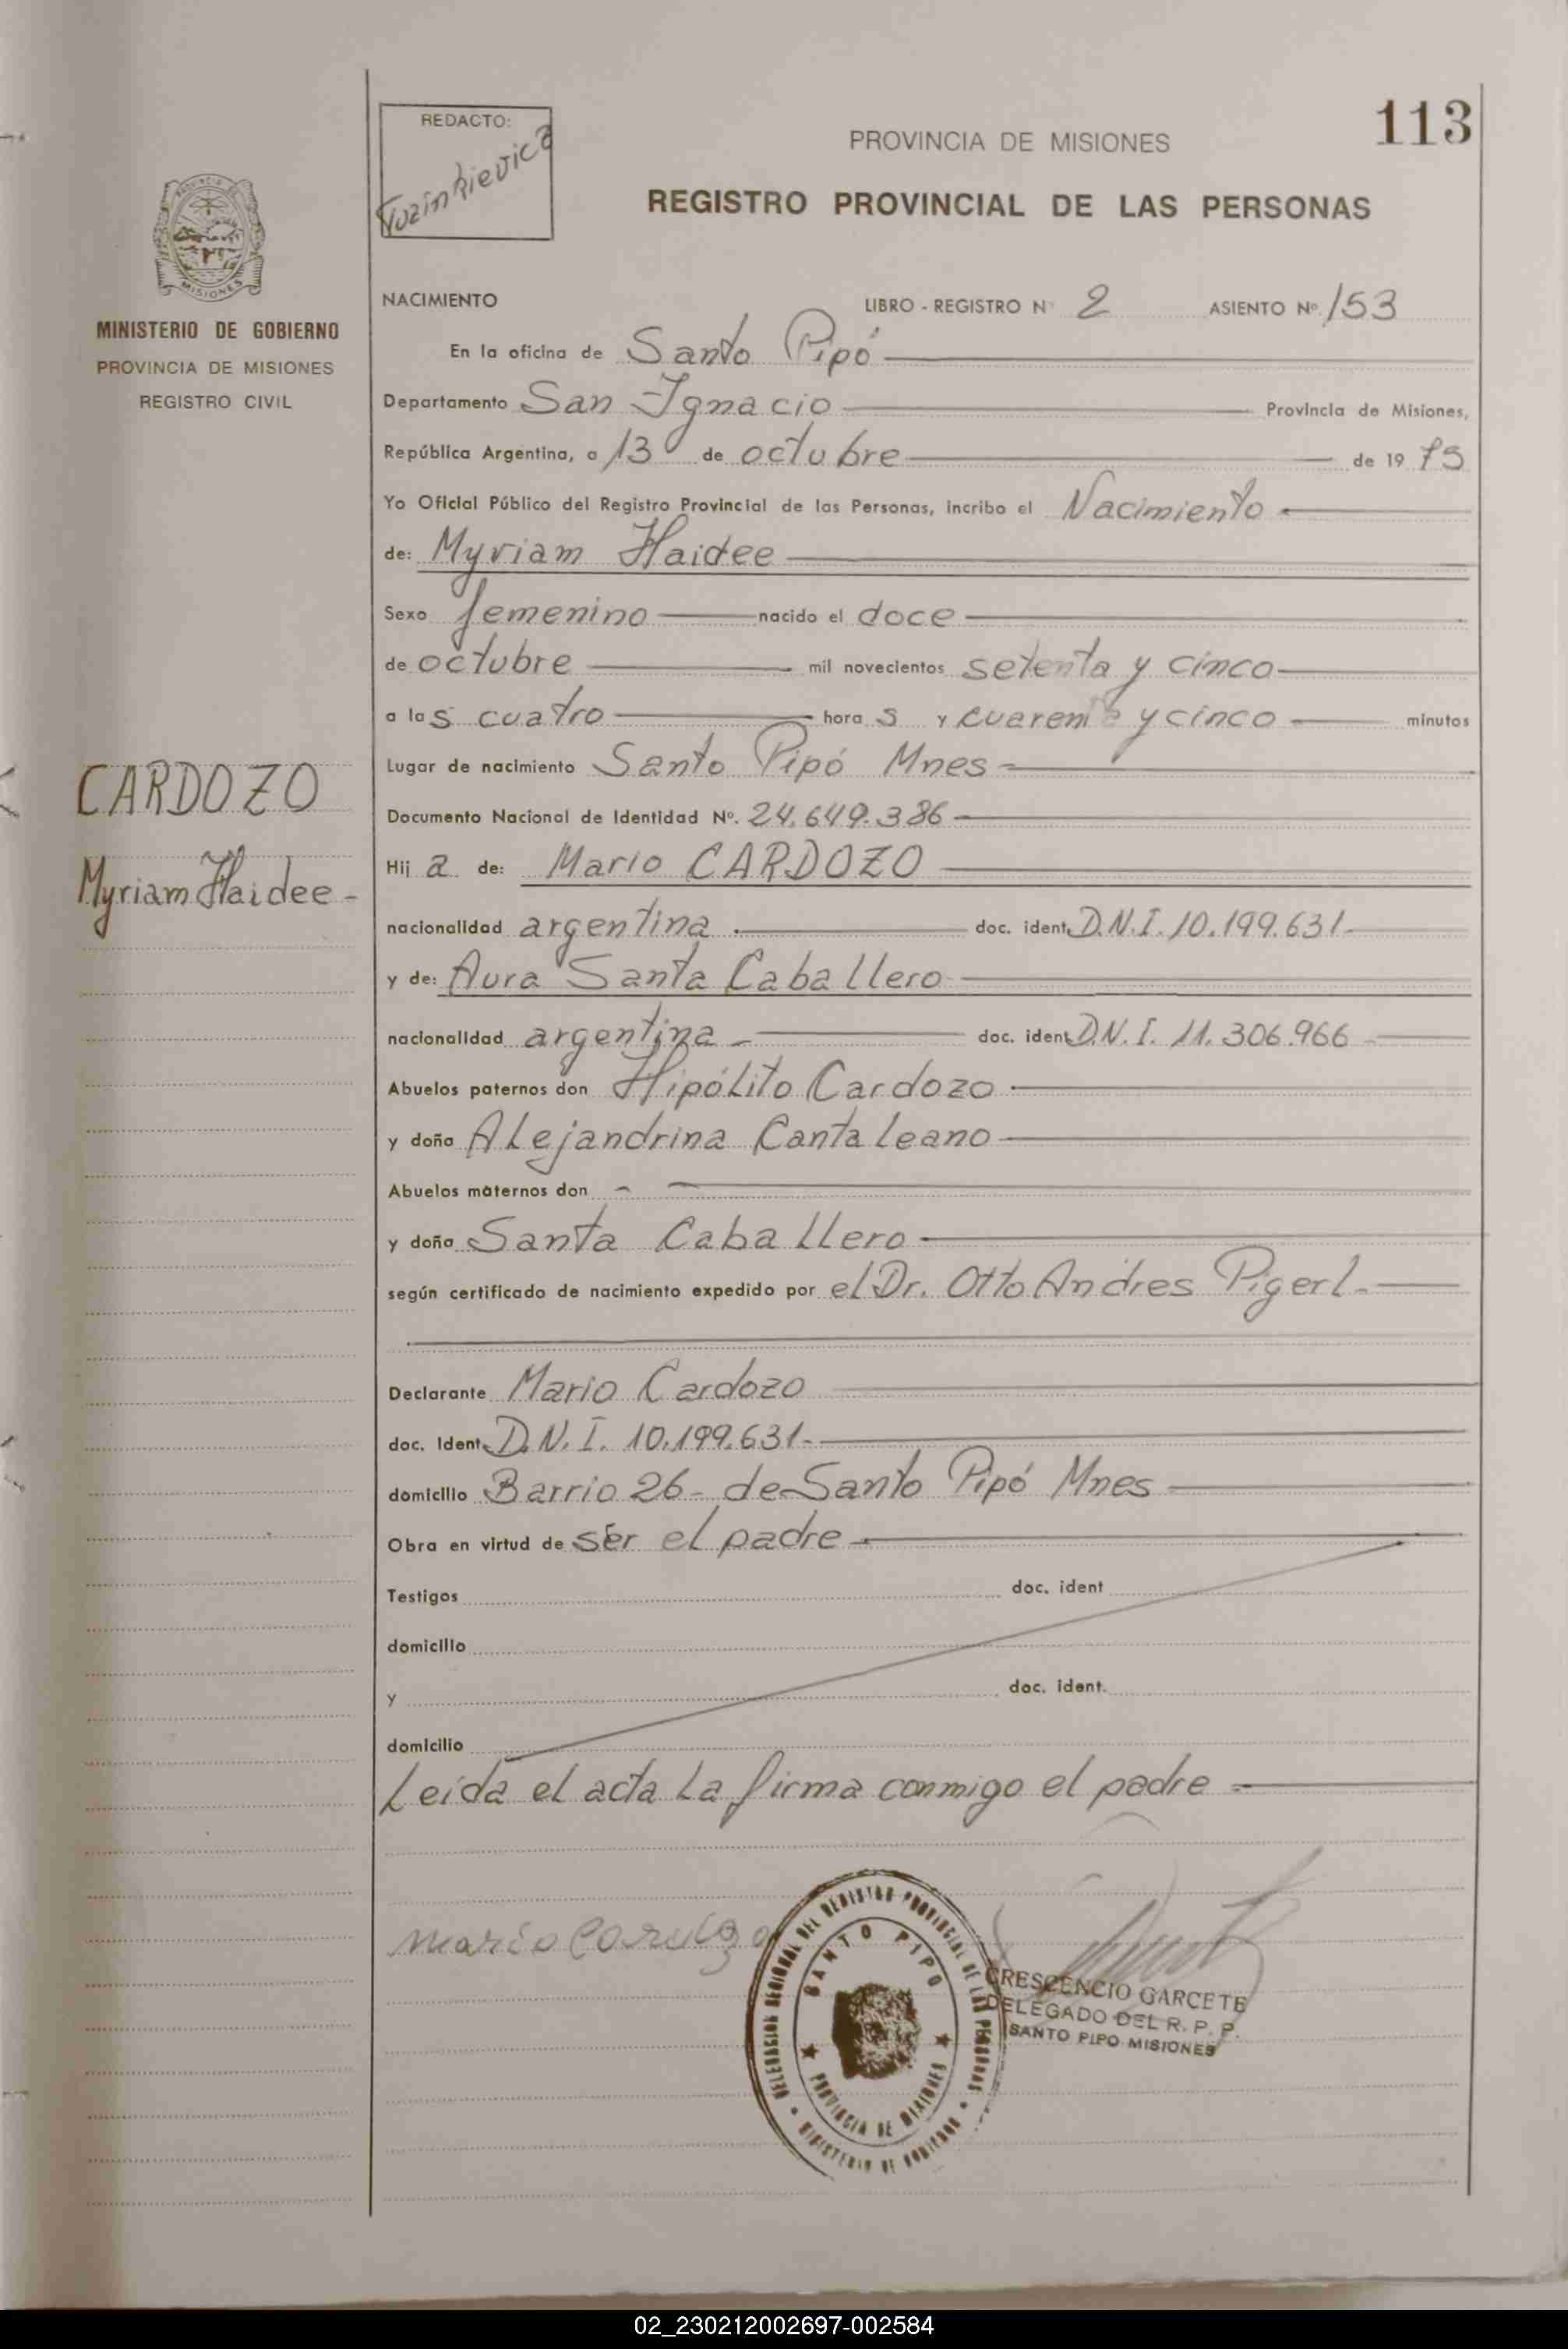 113
REDACTO:
PROVINCIA DE MISIONES
REGISTRO PROVINCIAL DE LAS PERSONAS
MISIONES
MINISTERIO DE GOBIERNO
PROVINCIA DE MISIONES
REGISTRO CIVIL
CARDOZO
Myriam Haidee -
NACIMIENTO LIBRO - REGISTRO Nº 2 ASIENTO Nº 153
En la oficina de Santo Pipó
Departamento San Ignacio Provincia de Misiones,
República Argentina, a 13 de octubre de 1975
Yo Oficial Público del Registro Provincial de las Personas, incribo el Nacimiento
de: Myriam Haidee
Sexo femenino nacido el doce
de octubre mil novecientos setenta y cinco
a las cuatro horas y cuarenta y cinco minutos
Lugar de nacimiento Santo Pipó Mnes
Documento Nacional de Identidad Nº. 24.649.386
Hija de: Mario CARDOZO
nacionalidad argentina doc. ident. D.N.I. 10.199.631-
y de: Aura Santa Caballero
nacionalidad argentina - doc. ident. D.N.I. 11.306.966 -
Abuelos paternos don Hipólito Cardozo
y doña Alejandrina Cantaleano
Abuelos maternos don -
y doña Santa Caballero
según certificado de nacimiento expedido por el Dr. Otto Andres Pigerl.
Declarante Mario Cardozo
doc. Ident. D.N.I. 10.199.631-
domicilio Barrio 26 - de Santo Pipó Mnes
Obra en virtud de ser el padre
Testigos doc. ident
domicilio
y doc. ident.
domicilio
Leída el acta la firma conmigo el padre
DELEGACION REGIONAL DEL REGISTRO PROVINCIAL DE LAS PERSONAS
SANTO PIPO
PROVINCIA DE MISIONES
MINISTERIO DE GOBIERNO
CRESCENCIO GARCETE
DELEGADO DEL R. P. P.
SANTO PIPO MISIONES
02_230212002697-002584